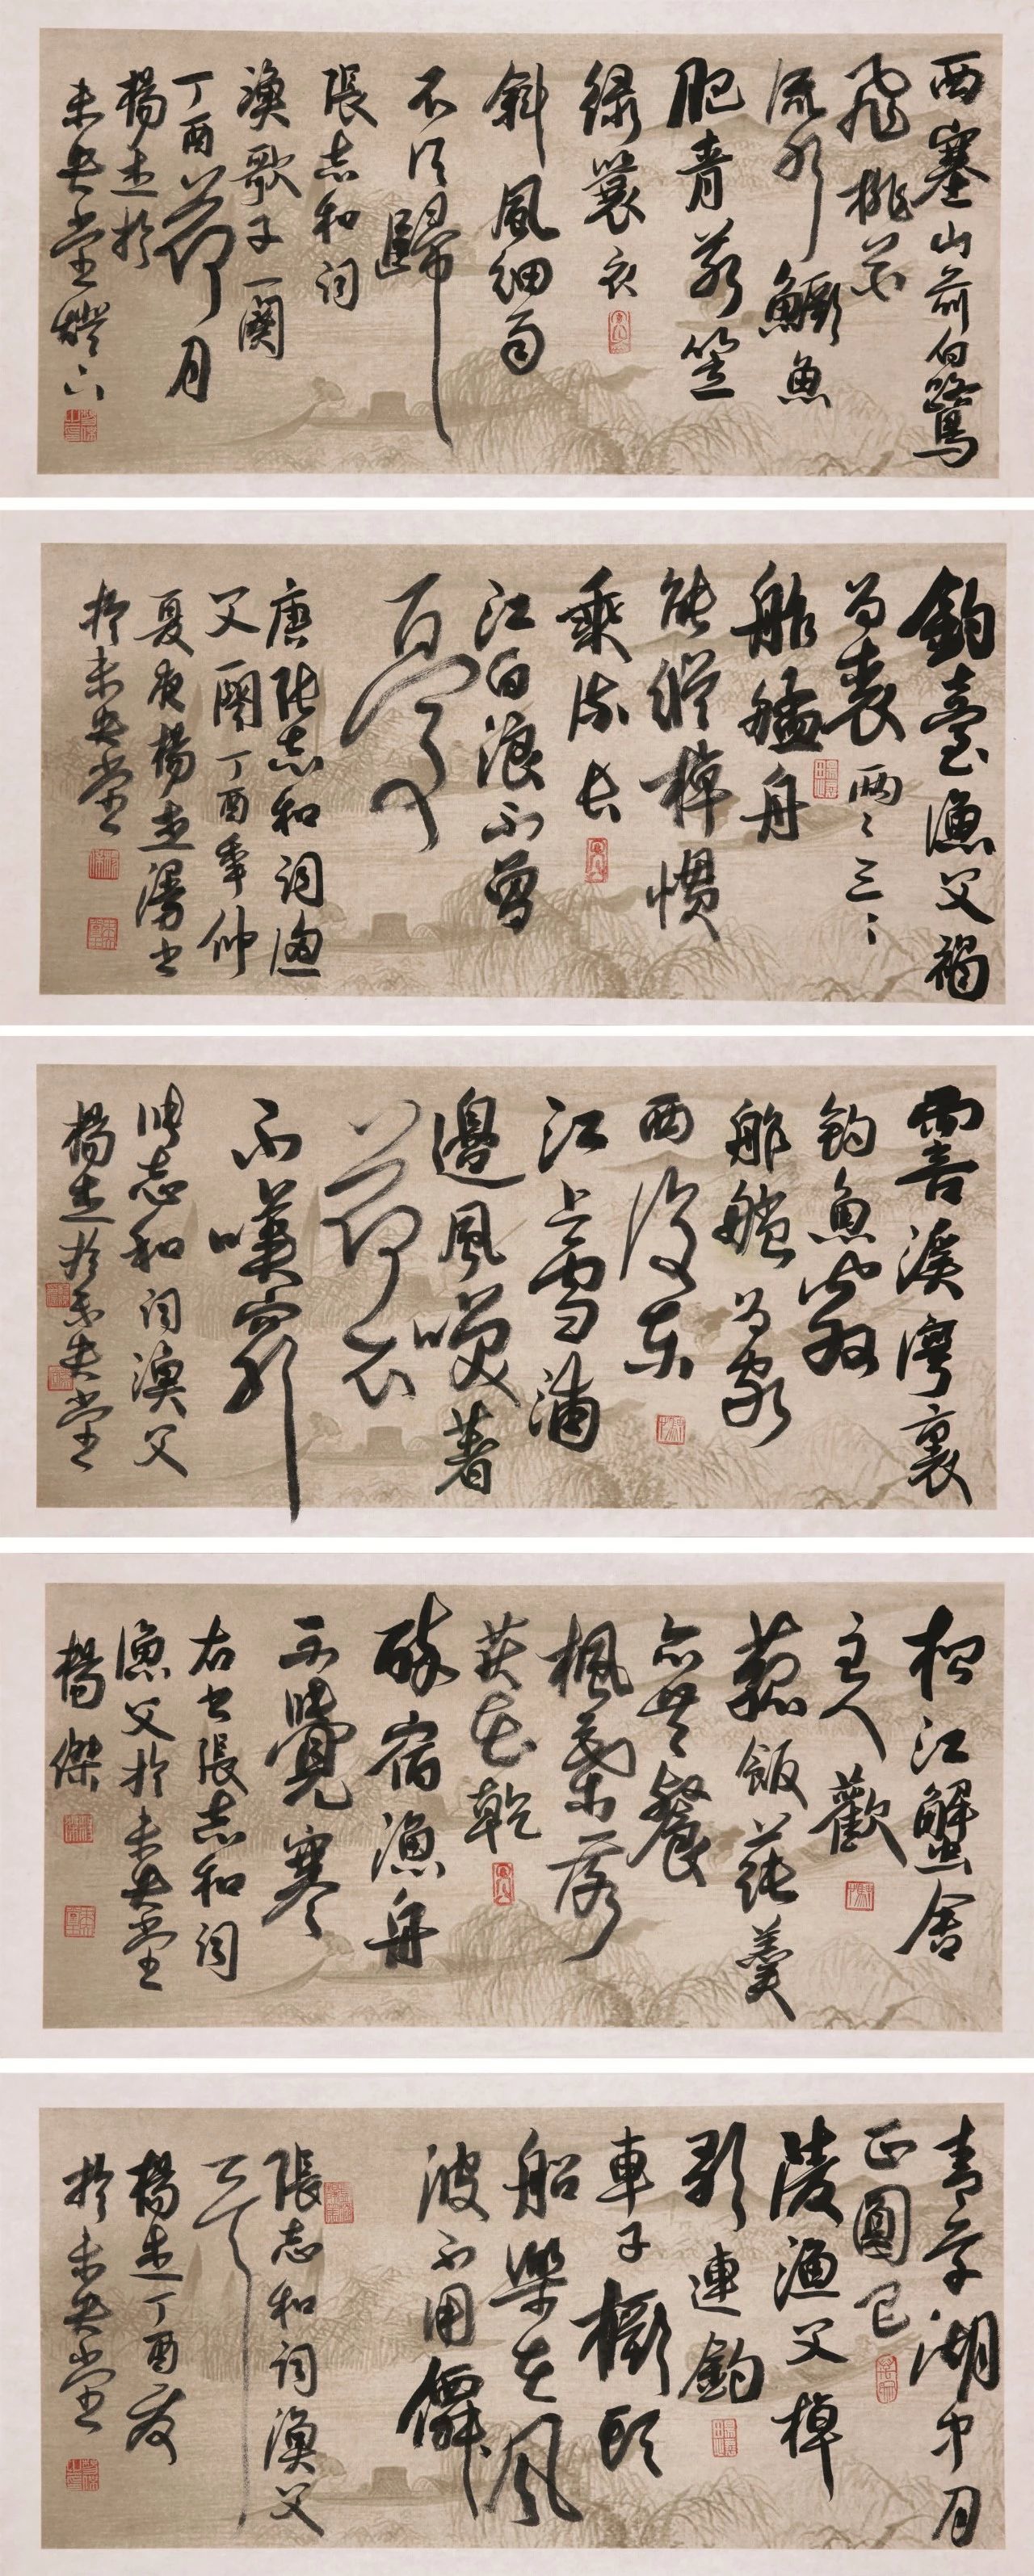 西塞山前白鷺
飛桃花
流水鱖魚
肥青箬笠
綠蓑衣
斜風細雨
不須歸
張志和詞
漁歌子一闋
丁酉荷月
楊杰於
未央堂燈下
釣臺漁父褐
為裘兩々三々
舴艋舟
能縱棹慣
乘流長
江白浪不曾
百憂
唐張志和詞漁
父一闋丁酉年仲
夏夜楊杰漫書
於未央堂
霅溪灣裏
釣魚翁
舴艋為家
西復東
江上雪浦
邊風笑著
荷衣
不嘆窮
張志和詞漁父
楊杰於未央堂
松江蟹舍
主人歡
菰飯蓴羹
亦共餐
楓葉落
荻花乾
醉宿漁舟
不覺寒
右書張志和詞
漁父於未央堂
楊傑
青草湖中月
正圓巴
陵漁父棹
歌連釣
車子橛頭
船樂在風
波不用僊
張志和詞漁父
楊杰丁酉夜
於未央堂